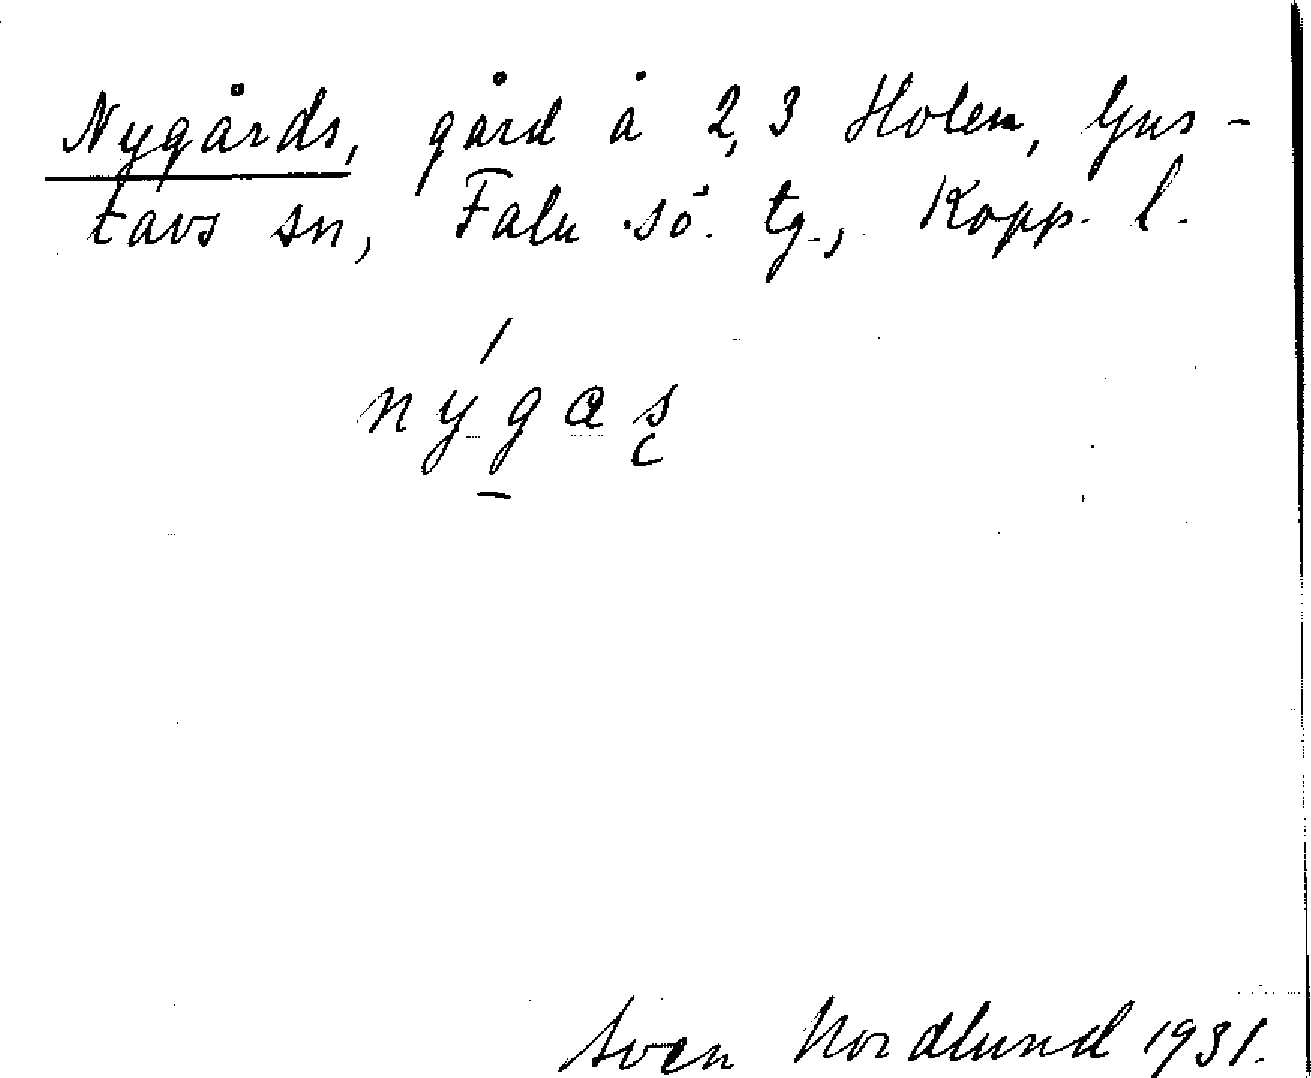 Nygårds, gård å 2,3 Holen, Gus-
tavs sn, Falu sö. tg., Kopp. l.
nýgas̨
Sven Nordlund 1931.